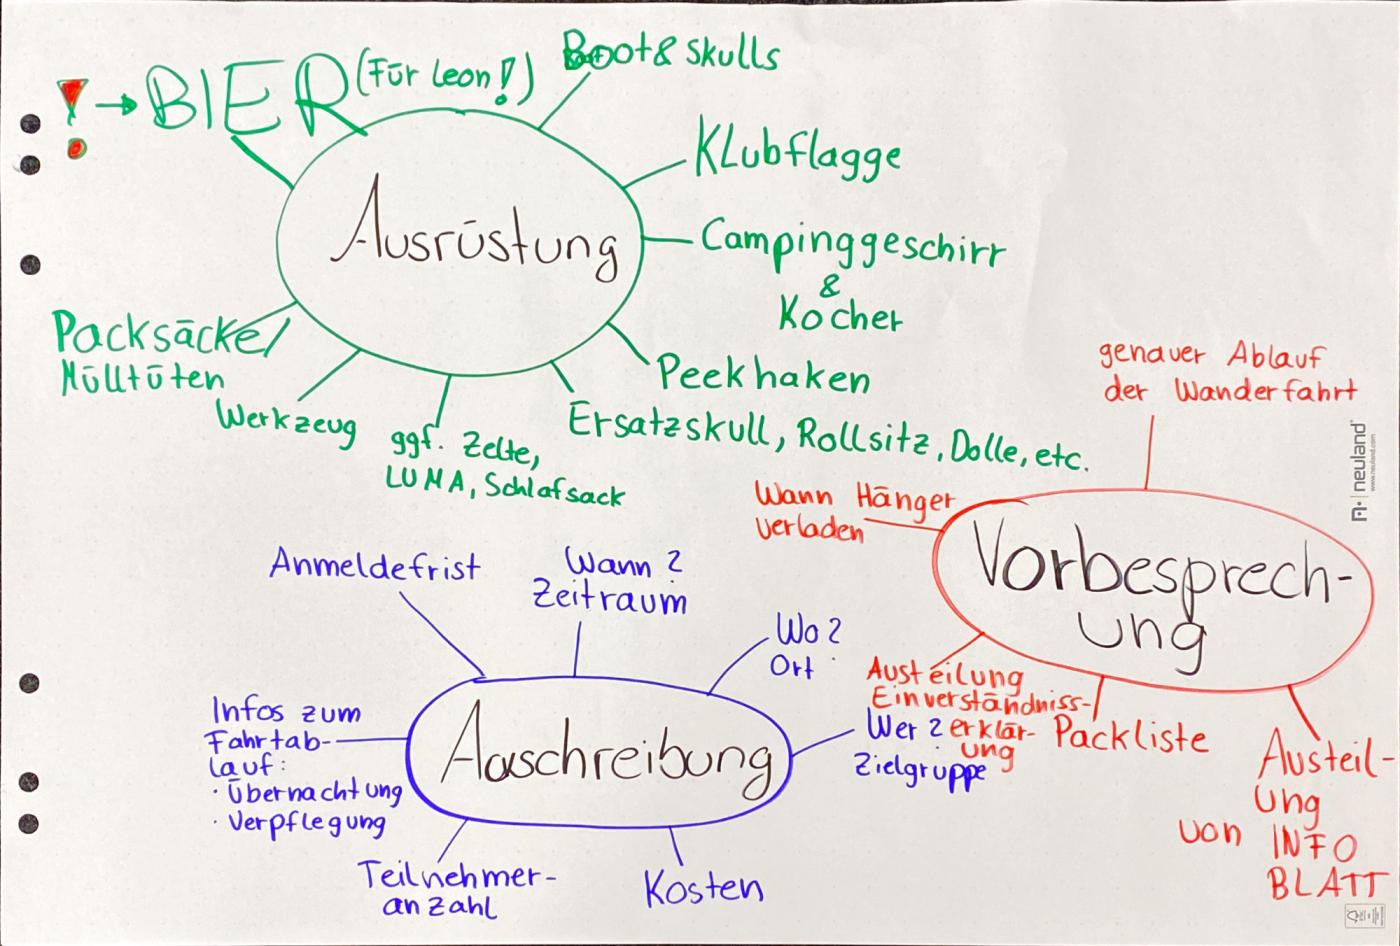 ! → BIER (Für Leon!)
Boot & Skulls
Klubflagge
Ausrüstung
Campinggeschirr
&
Kocher
Packsäcke/
Mülltüten
Peekhaken
Werkzeug
ggf. Zelte,
LUMA, Schlafsack
Ersatzskull, Rollsitz, Dolle, etc.
genauer Ablauf
der Wanderfahrt
neuland
www.neuland.com
Wann Hänger
verladen
Vorbesprech-
ung
Austeilung
Einverständniss-
erklär-
ung
Packliste
Austeil-
ung
von INFO
BLATT
Anmeldefrist
Wann?
Zeitraum
Wo?
Ort
Infos zum
Fahrtab-
lauf:
· Übernachtung
· Verpflegung
Auschreibung
Wer?
Zielgruppe
Teilnehmer-
anzahl
Kosten